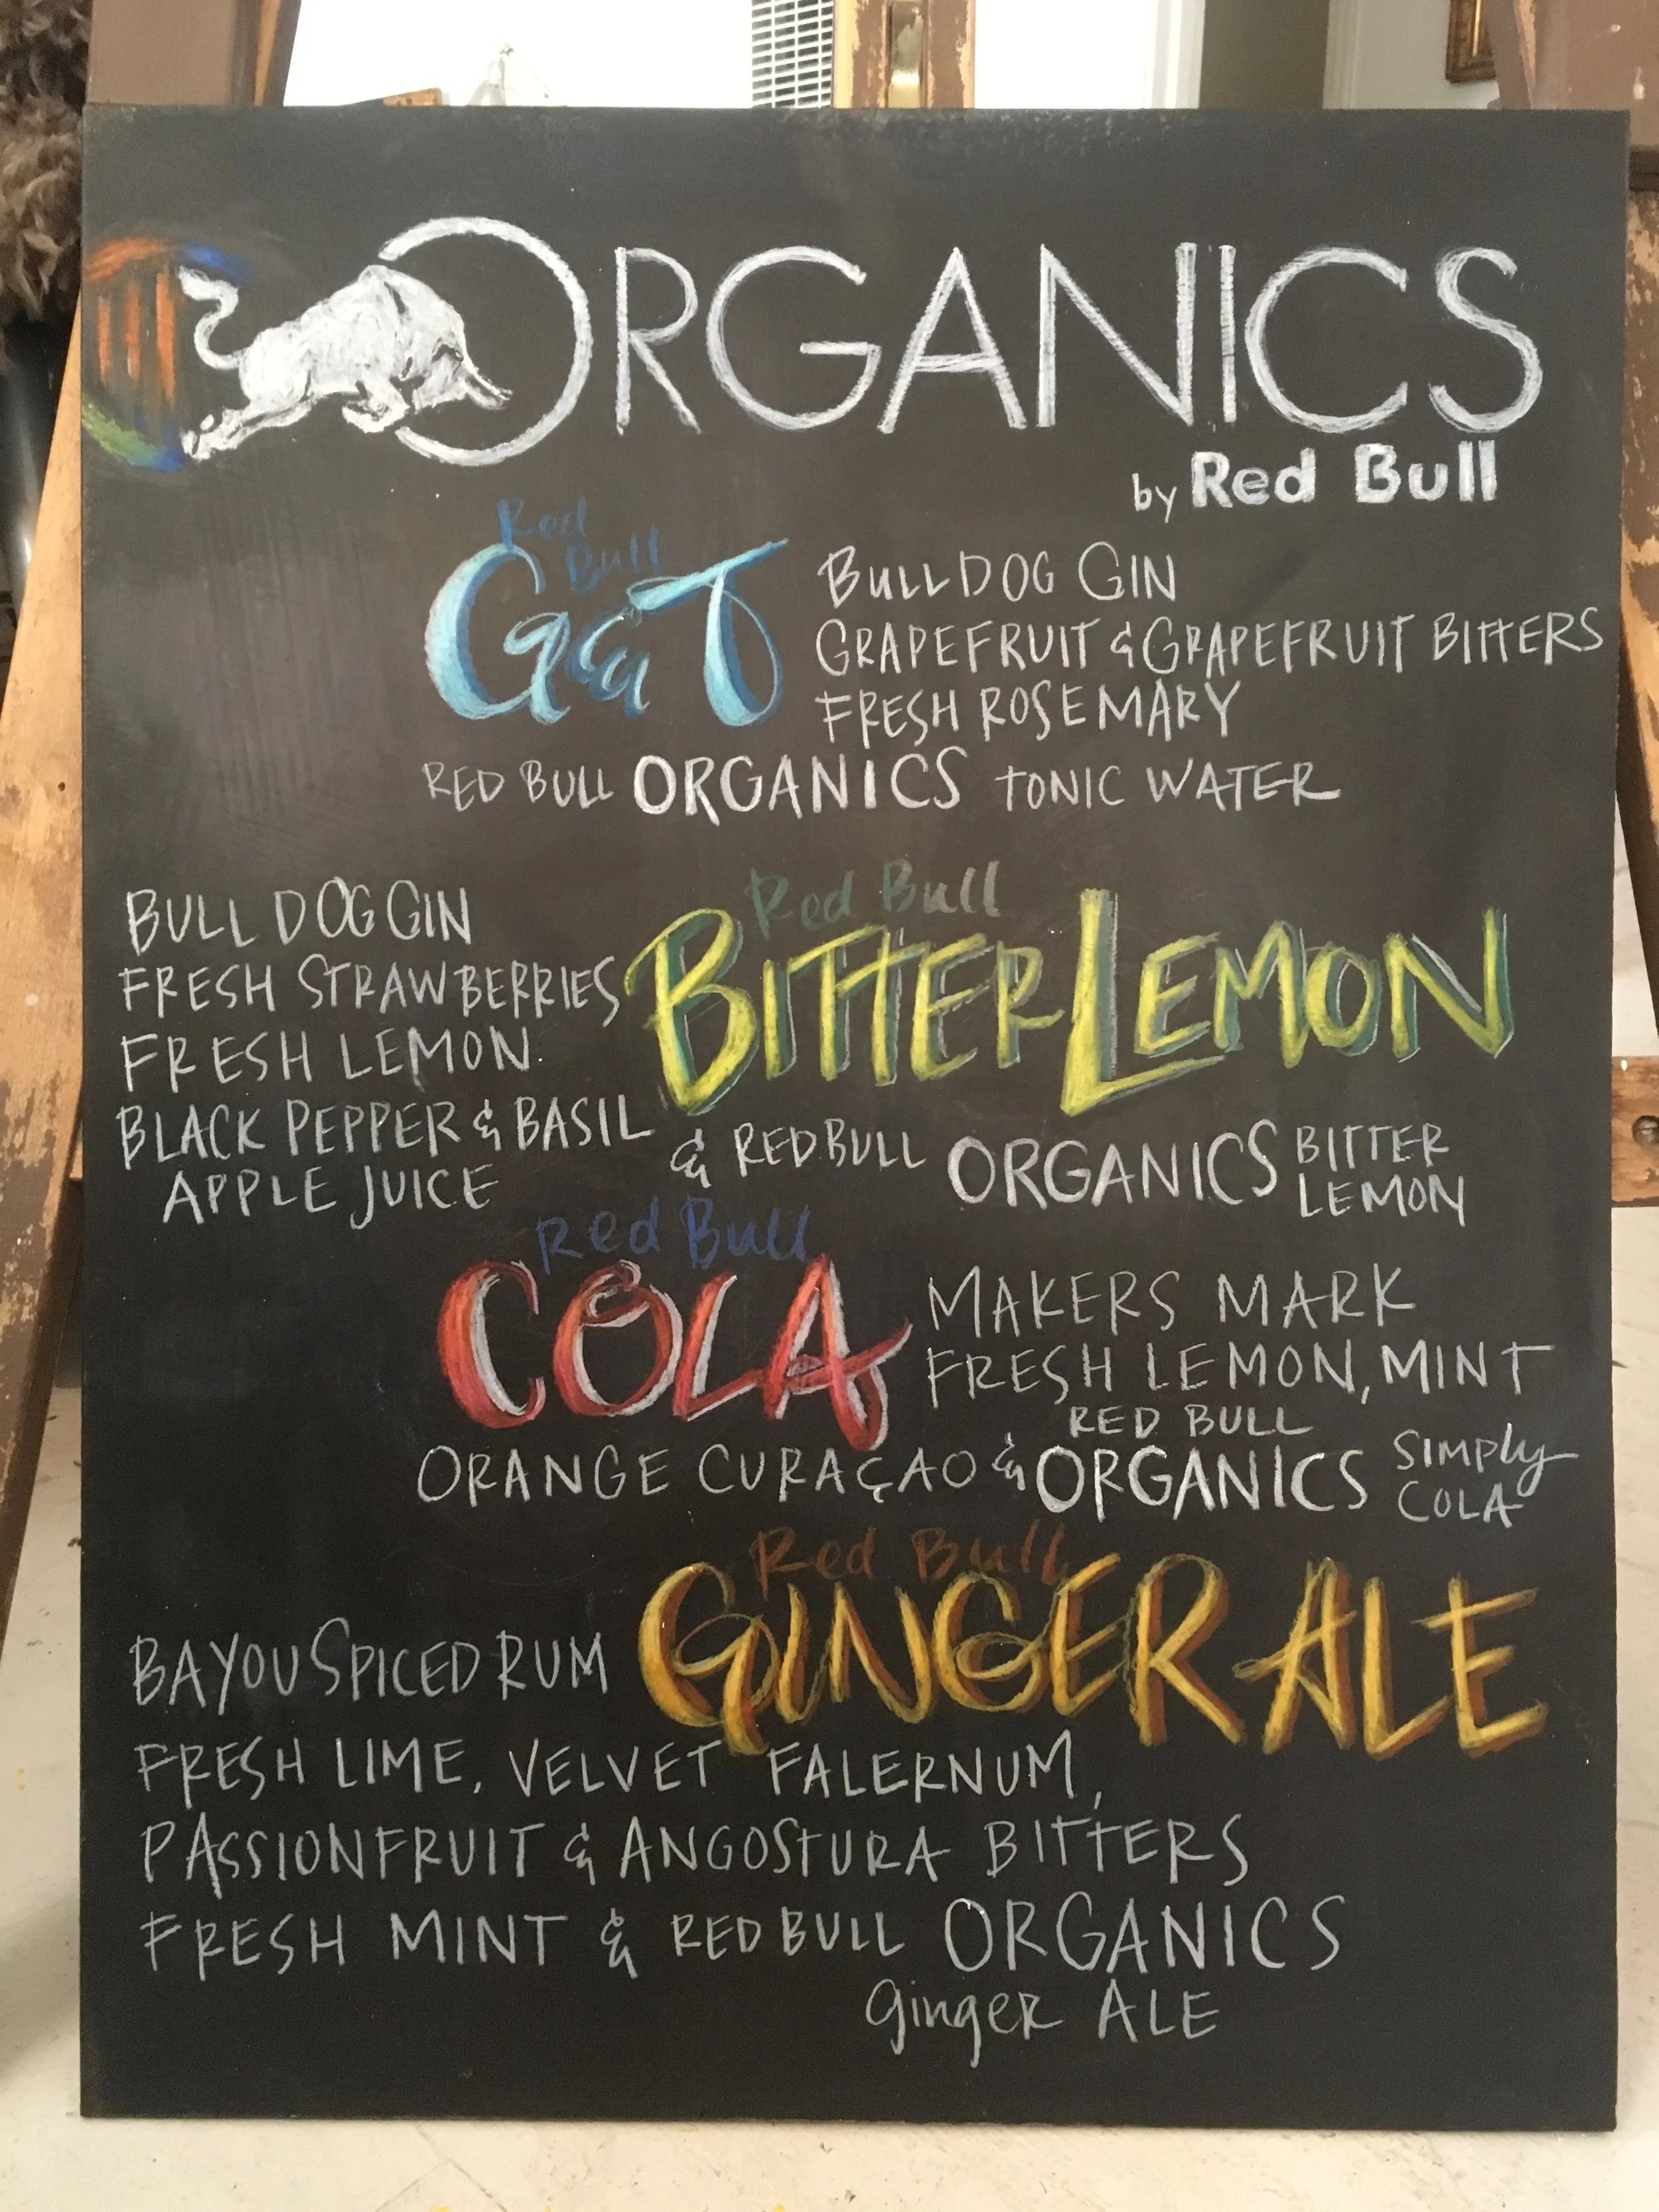 ORGANICS
by Red Bull
Red
Bull
G&T
BULLDOG GIN
GRAPEFRUIT & GRAPEFRUIT BITTERS
FRESH ROSEMARY
RED BULL ORGANICS TONIC WATER
Red Bull
BITTER LEMON
BULLDOG GIN
FRESH STRAWBERRIES
FRESH LEMON
BLACK PEPPER & BASIL
APPLE JUICE
& RED BULL ORGANICS BITTER
LEMON
Red Bull
COLA
MAKERS MARK
FRESH LEMON, MINT
ORANGE CURAÇAO & RED BULL
ORGANICS SIMPLY
COLA
Red Bull
GINGER ALE
BAYOU SPICED RUM
FRESH LIME, VELVET FALERNUM,
PASSIONFRUIT & ANGOSTURA BITTERS
FRESH MINT & RED BULL ORGANICS
Ginger ALE